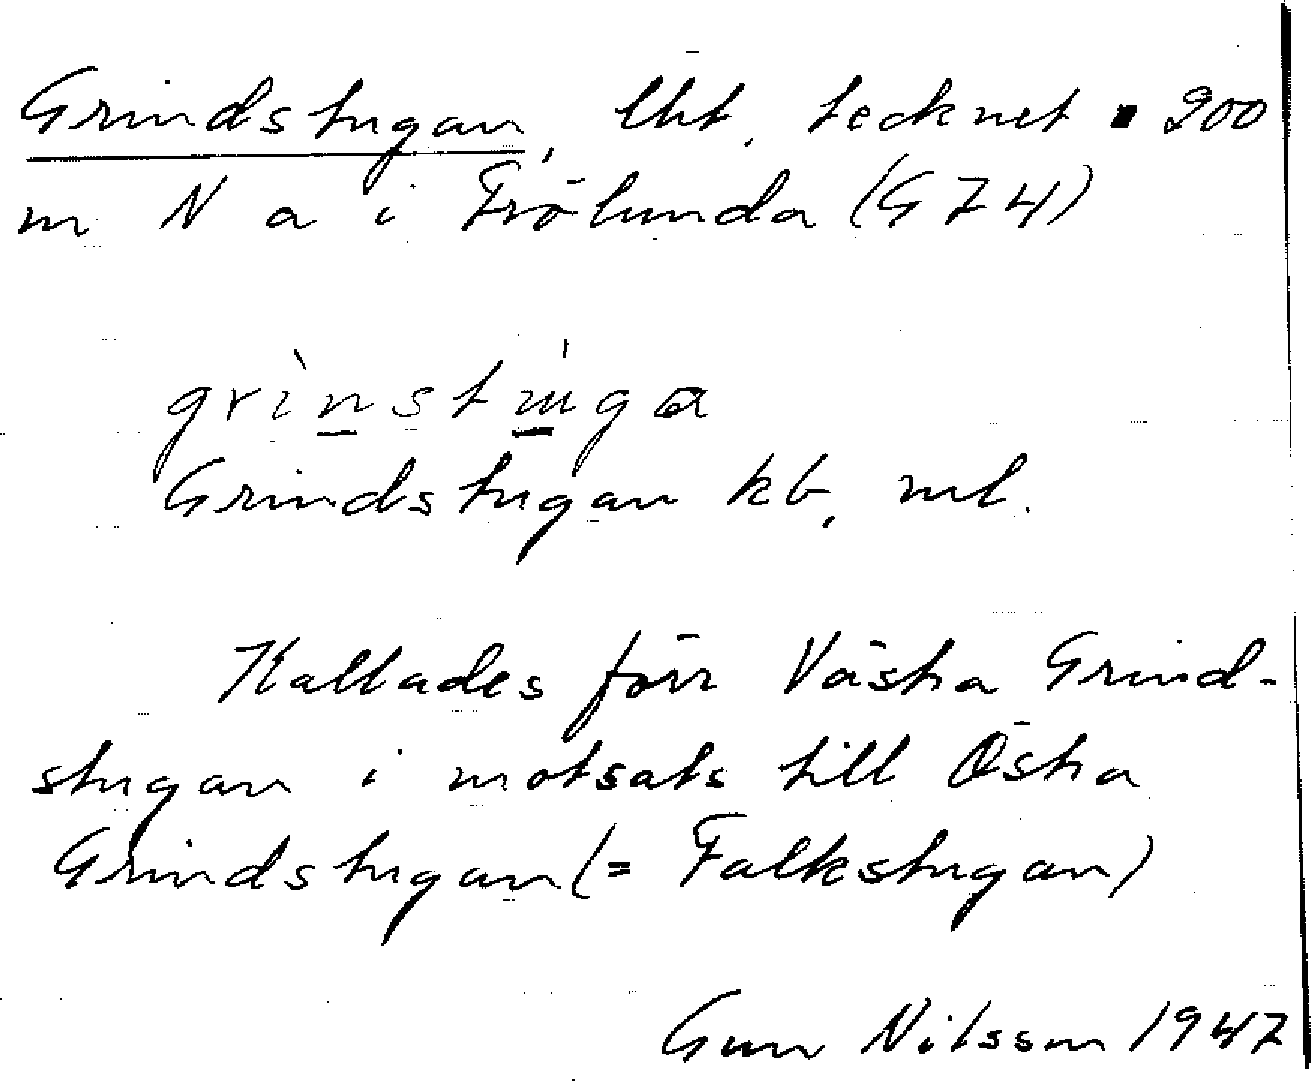 Grindstugan, lht. tecknet ▪ 200
m N a i Frölunda (G74)
grinstuga
Grindstugan kb, ml.
Kallades förr Västra Grind-
stugan i motsats till Östra
Grindstugan (= Falkstugan)
Gun Nilsson 1947